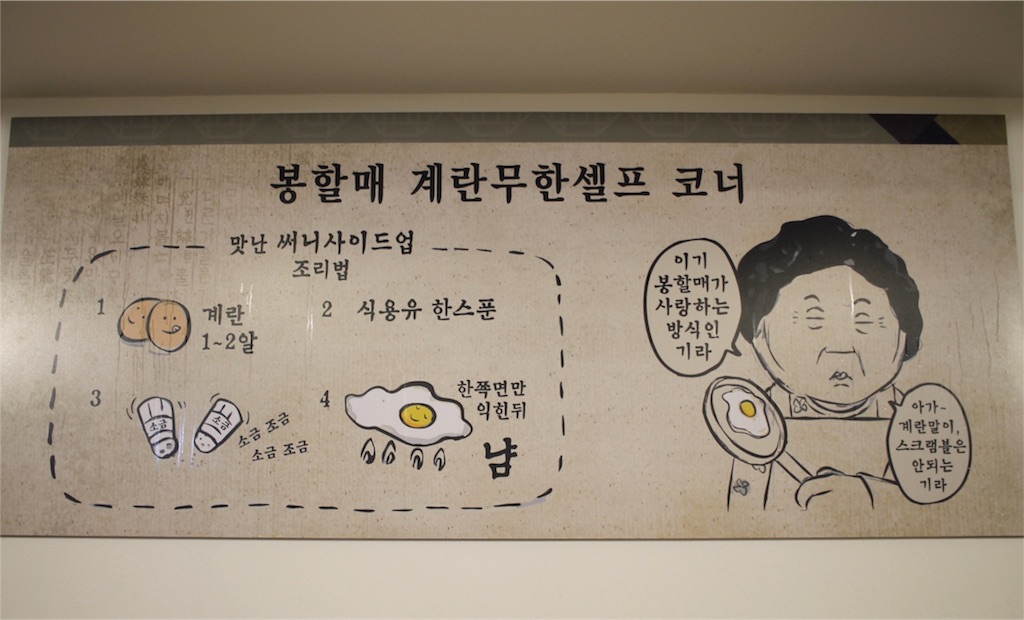 봉할매 계란무한셀프 코너
맛난 써니사이드업
조리법
1
계란
1~2알
2 식용유 한스푼
3
소금
소금
소금 조금
소금 조금
4
한쪽면만
익힌뒤
냠
이기
봉할매가
사랑하는
방식인
기라
아가~
계란말이,
스크램블은
안되는
기라